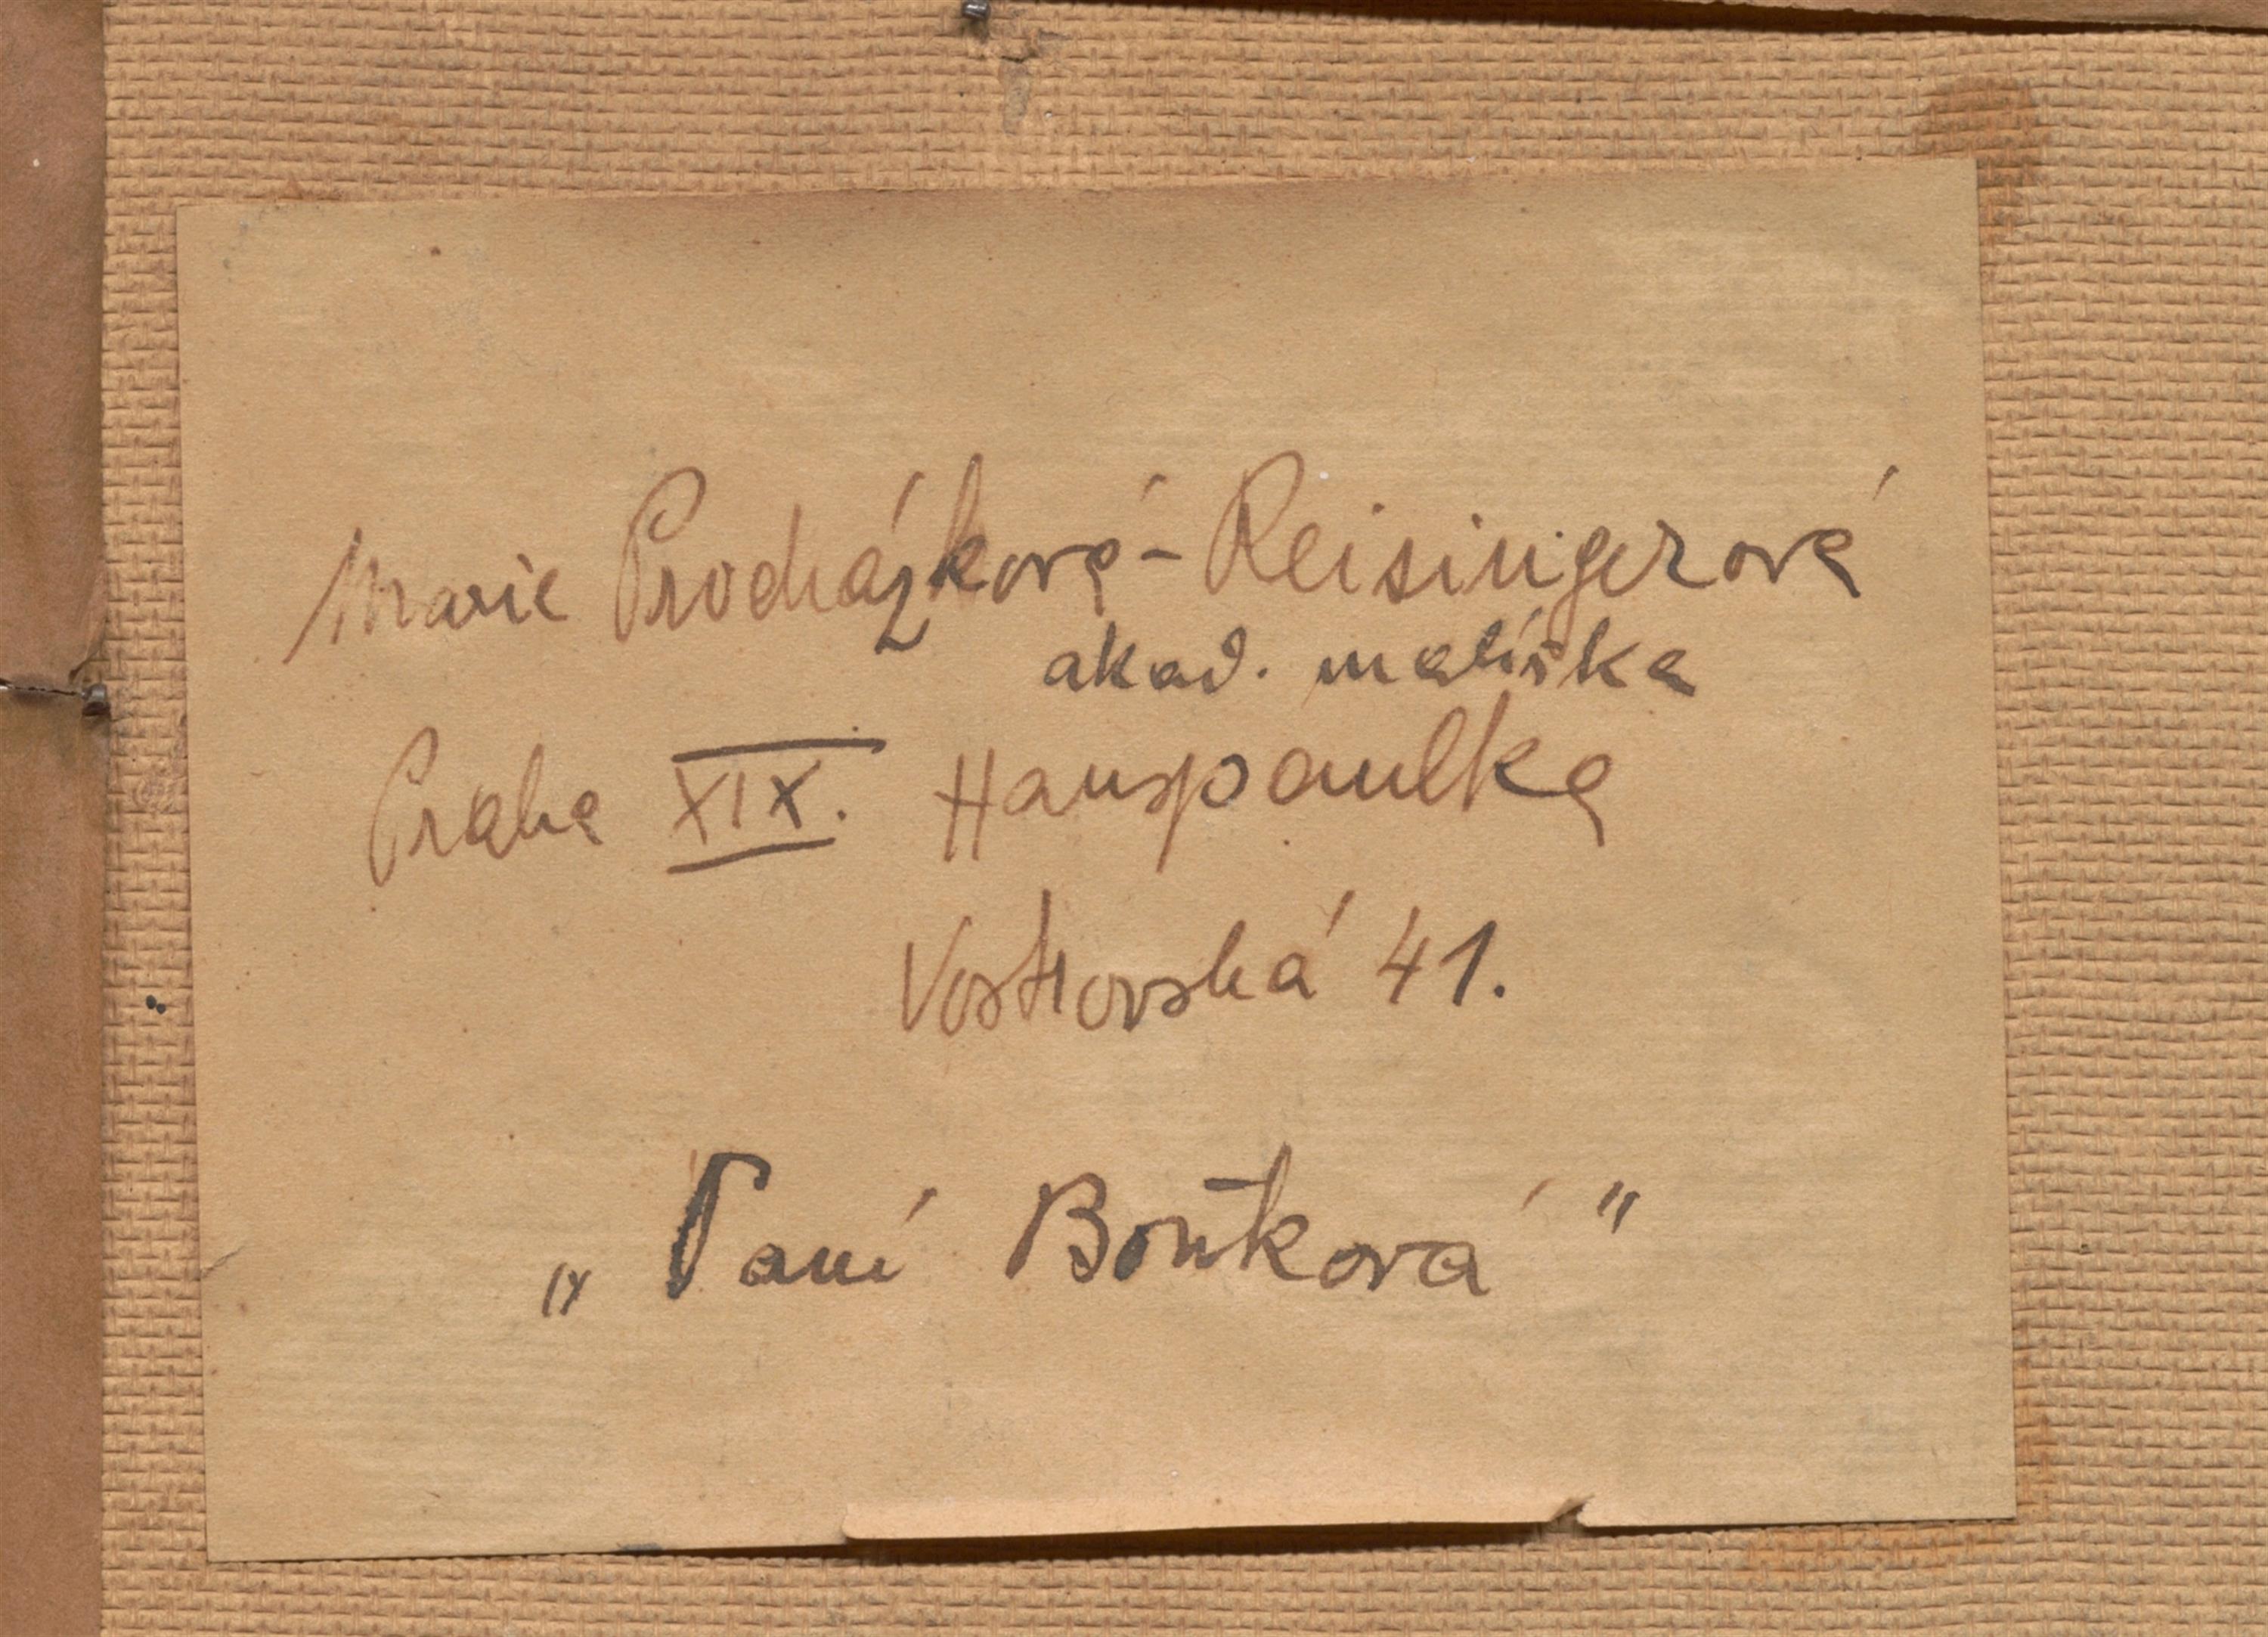 Marie Procházková - Reisingerová
akad. malířka
Praha XIX. Hanspaulka
Vostrovská 41.
„Paní Boučková"